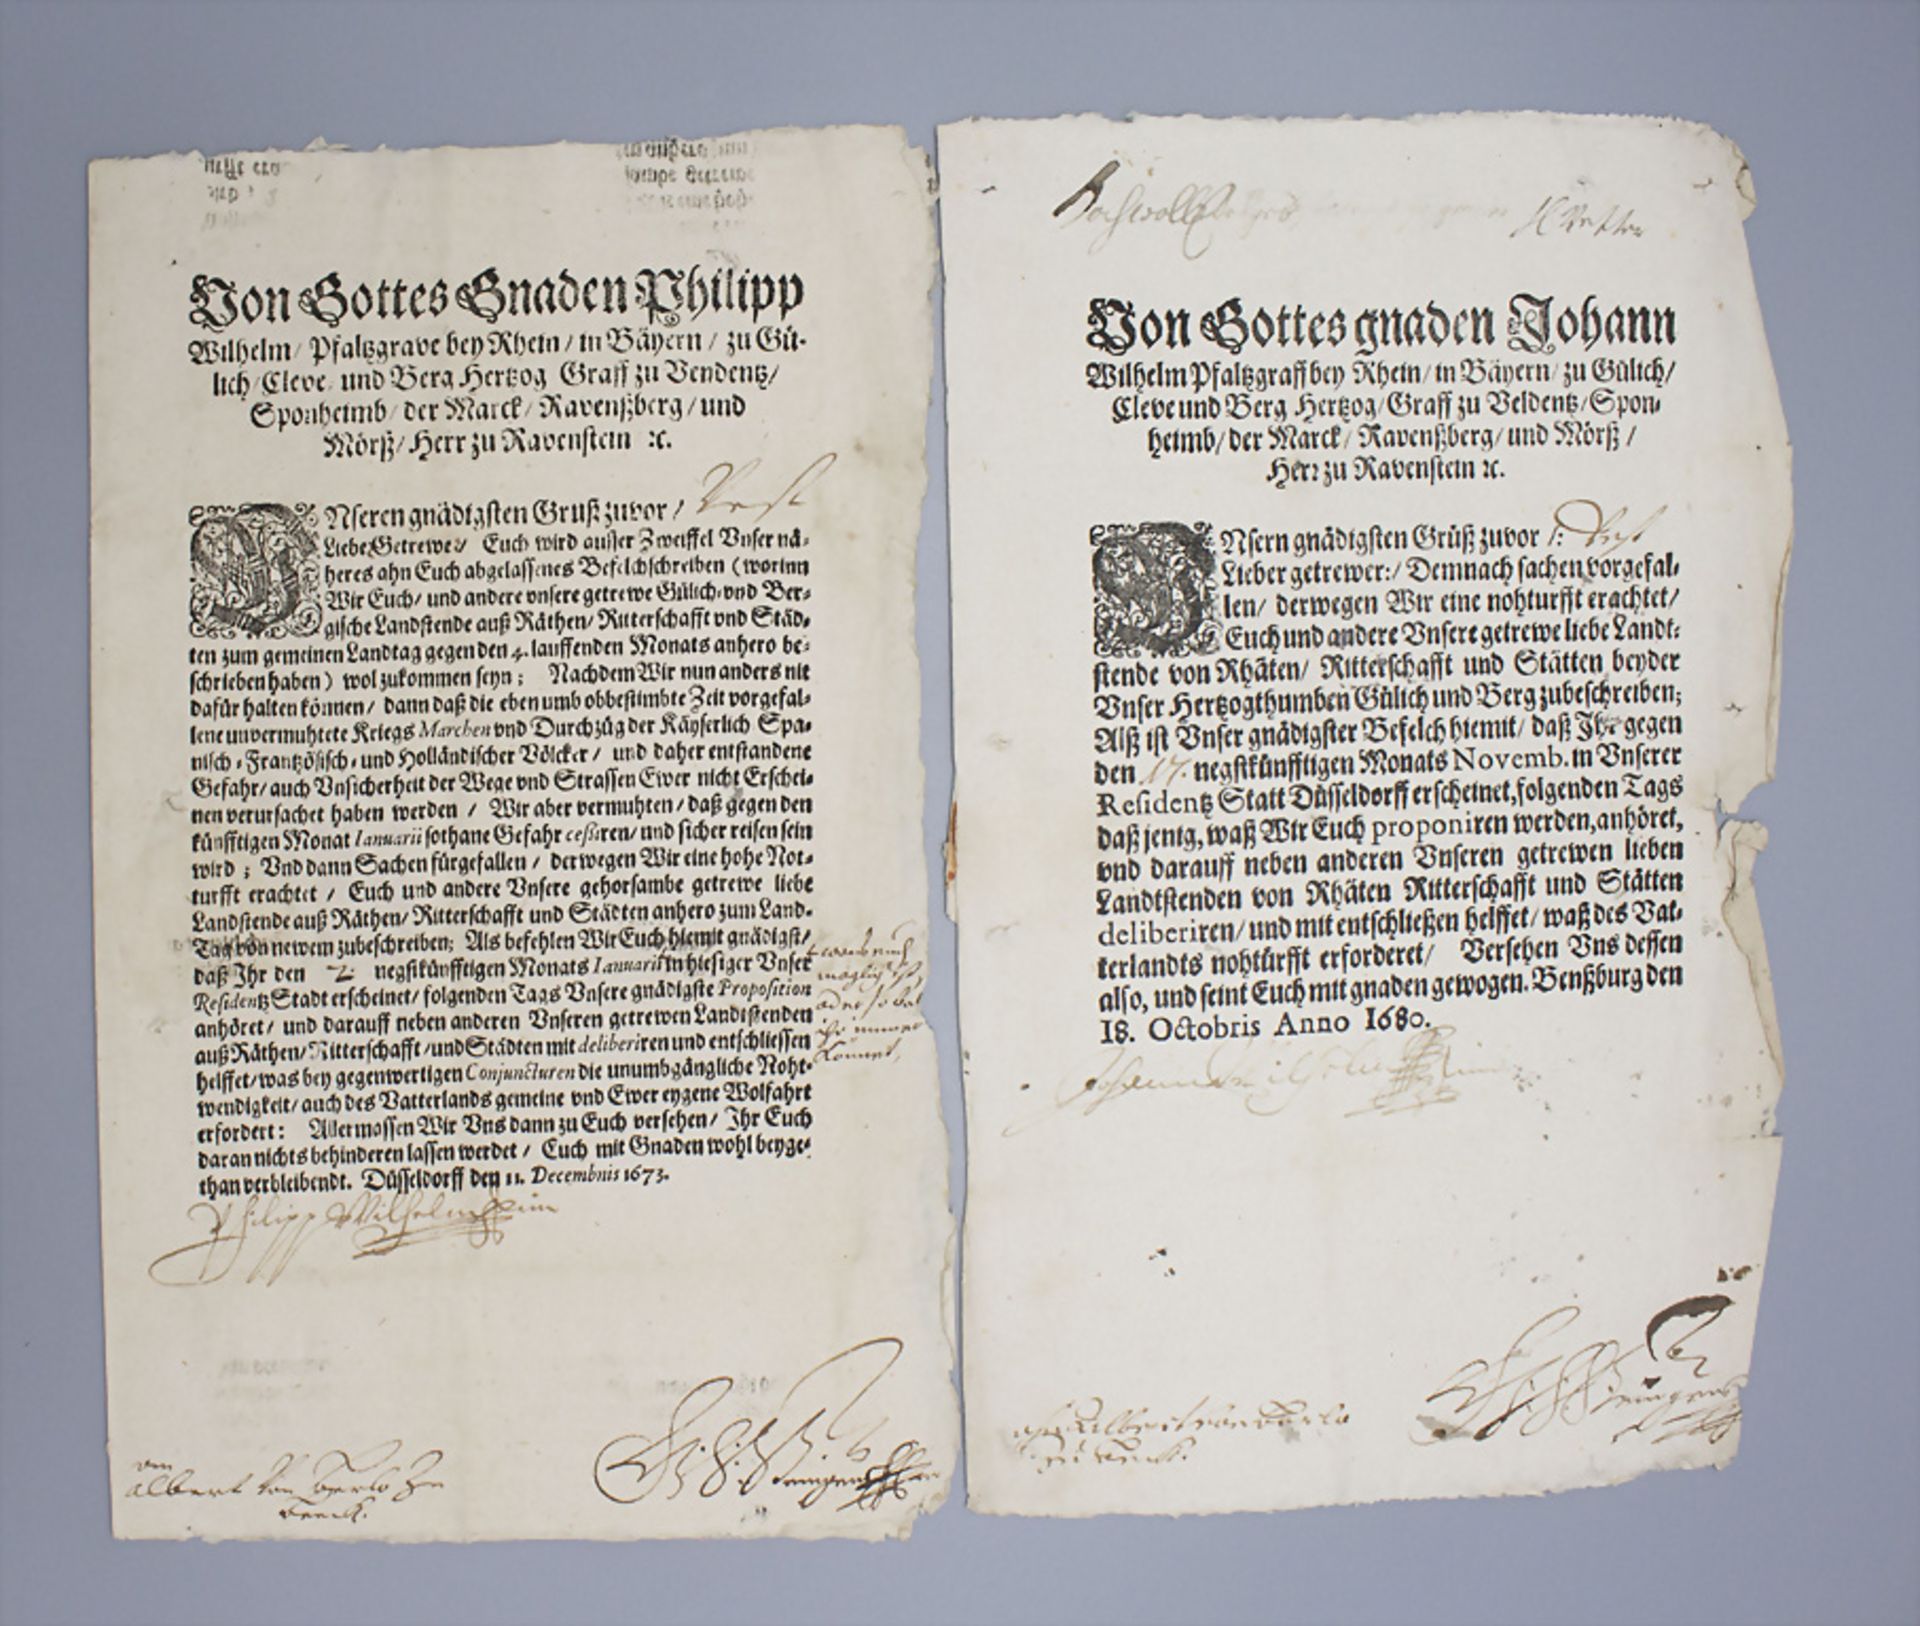 Von Gottes Gnaden Philipp
Wilhelm/ Pfaltzgrave bey Rhein/ in Bäyern/ zu Gü-
lich/ Cleve/ und Berg Hertzog Graff zu Vendentz/
Sponheimb/ der Marck/ Ravenßberg/ und
Mörß/ Herr zu Ravenstein ꝛc.
UNseren gnädigsten Gruß zuvor/ Vest
Liebe Getrewe/ Euch wird ausser Zweiffel Vnser nä-
heres ahn Euch abgelassenes Befelchschreiben (worinn
Wir Euch/ und andere vnsere getrewe Gülich- vnd Ber-
gische Landstende auß Räthen/ Ritterschafft vnd Städ-
ten zum gemeinen Landtag gegen den 4. lauffenden Monats anhero be-
schrieben haben) wol zukommen seyn; Nachdem Wir nun anders nit
dafür halten können/ dann daß die eben umb obbestimbte Zeit vorgefal-
lene unvermuhtete Kriegs Marchen vnd Durchzüg der Käyserlich Spa-
nisch-Frantzösisch- und Holländischer Völcker/ und daher entstandene
Gefahr/ auch Vnsicherheit der Wege vnd Strassen Ewer nicht Erschei-
nen verursachet haben werden/ Wir aber vermuhten/ daß gegen den
künfftigen Monat Ianuarii sothane Gefahr cessiren/ und sicher reisen sein
wird; Vnd dann Sachen fürgefallen/ derwegen Wir eine hohe Not-
turfft erachtet/ Euch und andere Vnsere gehorsambe getrewe liebe
Landstende auß Räthen/ Ritterschafft und Städten anhero zum Land-
Tag von newem zubeschreiben; Als befehlen Wir Euch hiemit gnädigst/
daß Ihr den 2. negstkünfftigen Monats Ianuarii in hiesiger Vnser
Residentz Stadt erscheinet/ folgenden Tags Vnsere gnädigste Proposition
anhöret/ und darauff neben anderen Vnseren getrewen Landtstenden
auß Räthen/ Ritterschafft/ und Städten mit deliberiren und entschliessen
helffet/ was bey gegenwertigen Conjuncturen die unumbgängliche Noht-
wendigkeit/ auch des Vatterlands gemeine vnd Ewer eygene Wolfahrt
erfordert: Allermassen Wir Vns dann zu Euch versehen/ Ihr Euch
daran nichts behinderen lassen werdet/ Euch mit Gnaden wohl beyge-
than verbleibendt. Düsseldorff den 11. Decembris 1673.
Philipp Wilhelm
Albert von
Von Gottes gnaden Johann
Wilhelm Pfaltzgraff bey Rhein/ in Bäyern/ zu Gülich/
Cleve und Berg Hertzog/ Graff zu Veldentz/ Spon-
heimb/ der Marck/ Ravenßberg/ und Mörß/
Herr zu Ravenstein ꝛc.
UNsern gnädigsten Grüß zuvor/: Vest
Lieber getrewer:/ Demnach sachen vorgefal-
len/ derwegen Wir eine nohturfft erachtet/
Euch und andere Vnsere getrewe liebe Landt-
stende von Rhäten/ Ritterschafft und Stätten beyder
Vnser Hertzogthumben Gülich und Berg zubeschreiben;
Alß ist Vnser gnädigster Befelch hiemit/ daß Ihr gegen
den 17. negstkünfftigen Monats Novemb. in Vnserer
Residentz Statt Düsseldorff erscheinet, folgenden Tags
daß jenig, waß Wir Euch proponiren werden, anhöret,
vnd darauff neben anderen Vnseren getrewen lieben
Landtstenden von Rhäten Ritterschafft und Stätten
deliberiren/ und mit entschließen helffet/ waß des Vat-
terlandts nohtürfft erforderet/ Versehen Vns dessen
also, und seint Euch mit gnaden gewogen. Benßburg den
18. Octobris Anno 1680.
Johann Wilhelm